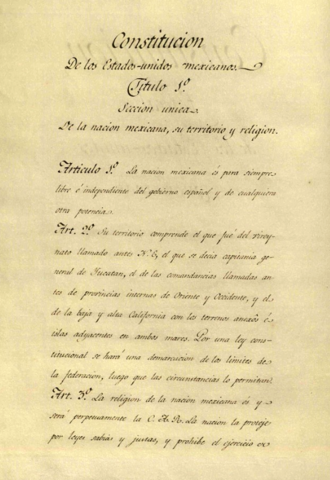 Constitucion
De los Estados-unidos mexicanos.
Titulo 1º
Seccion unica
De la nacion mexicana, su territorio y religion.
Articulo 1º La nacion mexicana es para siempre
libre é independiente del gobierno español y de cualquiera
otra potencia.
Art. 2º Su territorio comprende el que fué del virey-
nato llamado antes N. E, el que se decia capitania ge-
neral de Yucatan, el de las comandancias llamadas an-
tes de provincias internas de Oriente y Occidente, y el
de la baja y alta California con los terrenos anecsos é
islas adyacentes en ambos mares. Por una ley cons-
titucional se hará una demarcacion de los límites de
la federacion, luego que las circunstancias lo permitan.
Art. 3º La religion de la nacion mexicana es y
será perpetuamente la C. A. R. La nacion la proteje
por leyes sabias y justas, y prohibe el ejercicio de